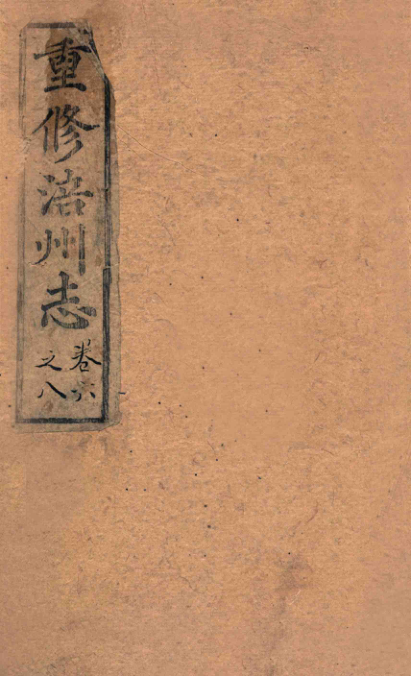 重修涪州志
卷六
之八